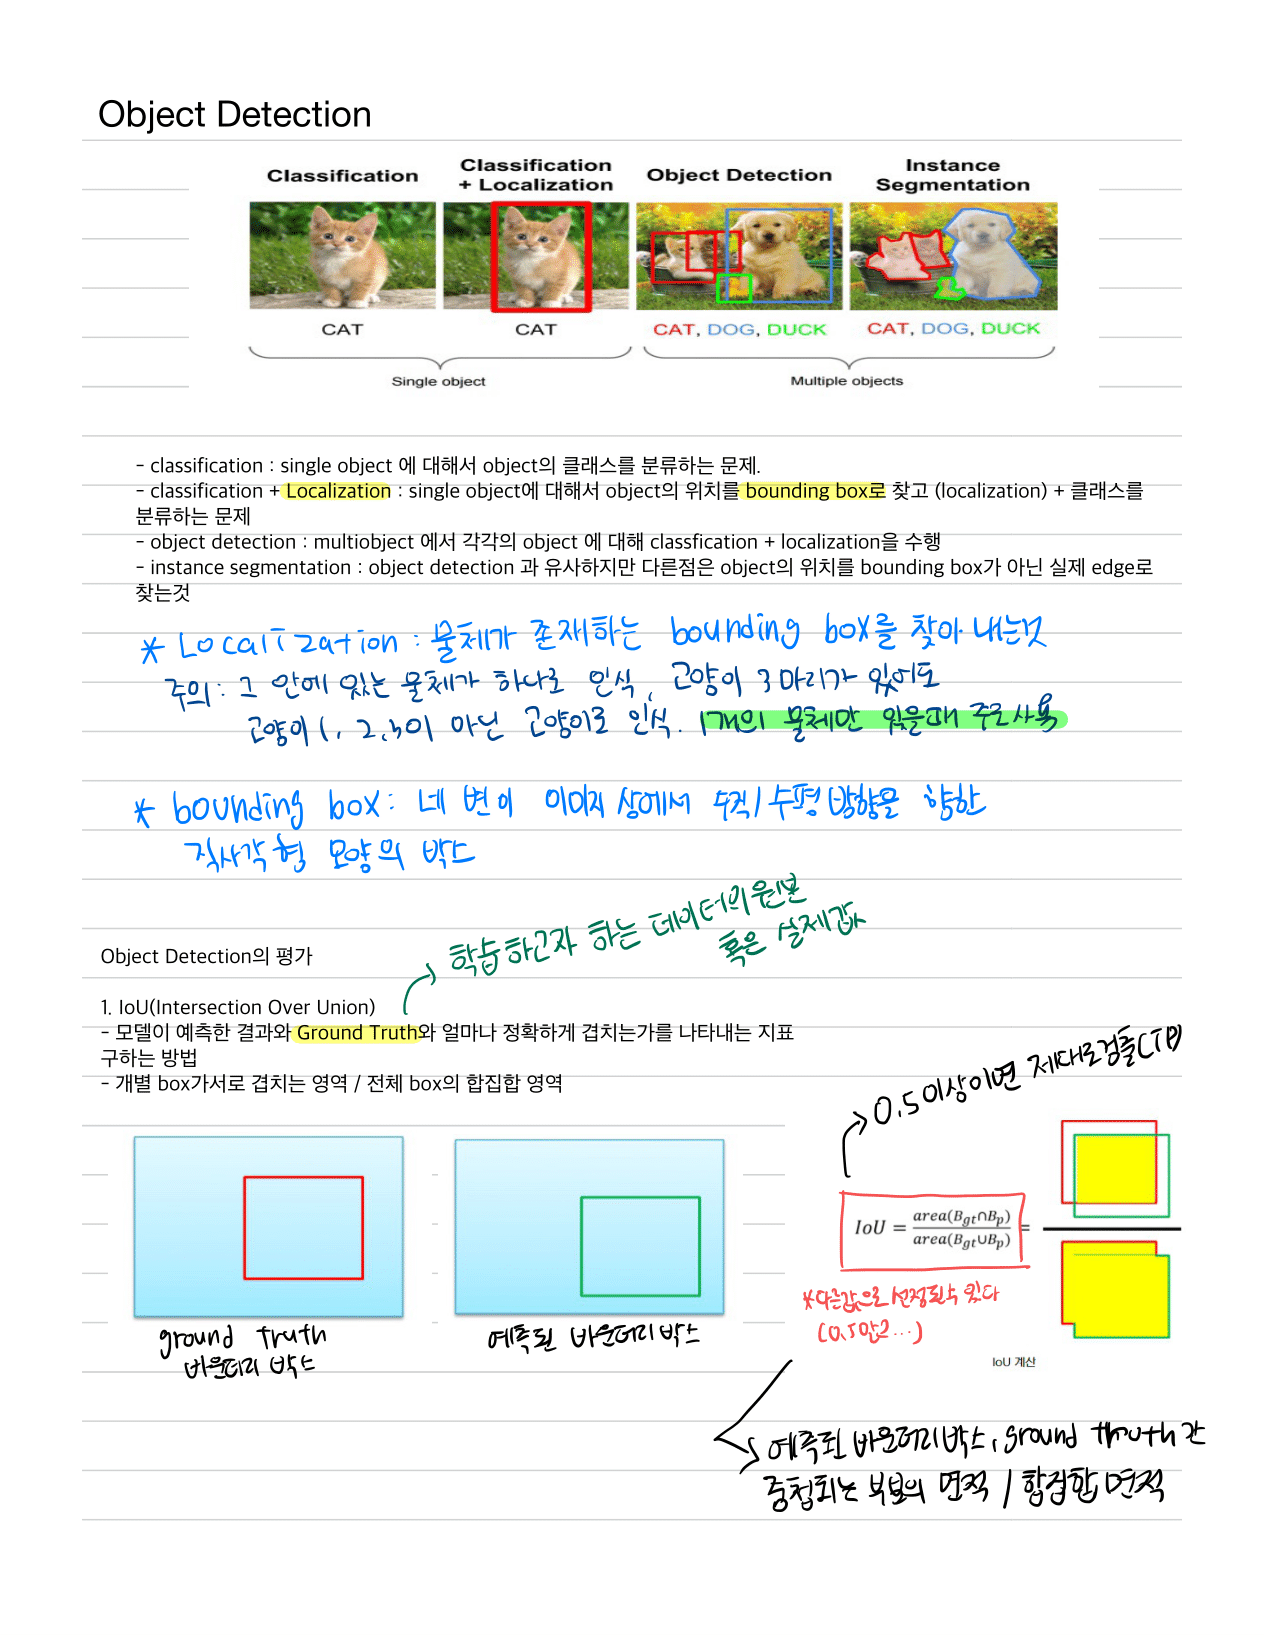 Object Detection
Classification
Classification
+ Localization
Object Detection
Instance
Segmentation
CAT
CAT
CAT, DOG, DUCK
CAT, DOG, DUCK
Single object
Multiple objects
- classification : single object 에 대해서 object의 클래스를 분류하는 문제.
- classification + Localization : single object에 대해서 object의 위치를 bounding box로 찾고 (localization) + 클래스를
분류하는 문제
- object detection : multiobject 에서 각각의 object 에 대해 classfication + localization을 수행
- instance segmentation : object detection 과 유사하지만 다른점은 object의 위치를 bounding box가 아닌 실제 edge로
찾는것
* Localization : 물체가 존재하는 bounding box를 찾아 내는것
주의 : 그 안에 있는 물체가 하나로 인식, 고양이 3마리가 있어도
고양이1, 2, 3이 아닌 고양이로 인식. 1개의 물체만 있을때 주로사용
* bounding box : 네 변이 이미지 상에서 수직/수평 방향을 향한
직사각형 모양의 박스
학습하고자 하는 데이터의 원본
혹은 실제값
Object Detection의 평가
1. IoU(Intersection Over Union)
- 모델이 예측한 결과와 Ground Truth와 얼마나 정확하게 겹치는가를 나타내는 지표
구하는 방법
- 개별 box가서로 겹치는 영역 / 전체 box의 합집합 영역
0.5이상이면 제대로검출(TP)
IoU = area(B_gt∩B_p) / area(B_gt∪B_p) =
*다른값으로 선정될수 있다
ground truth
바운더리 박스
예측된 바운더리박스
IoU 계산
예측된 바운더리박스, ground thruth 간
중첩되는 부분의 면적 / 합집합 면적